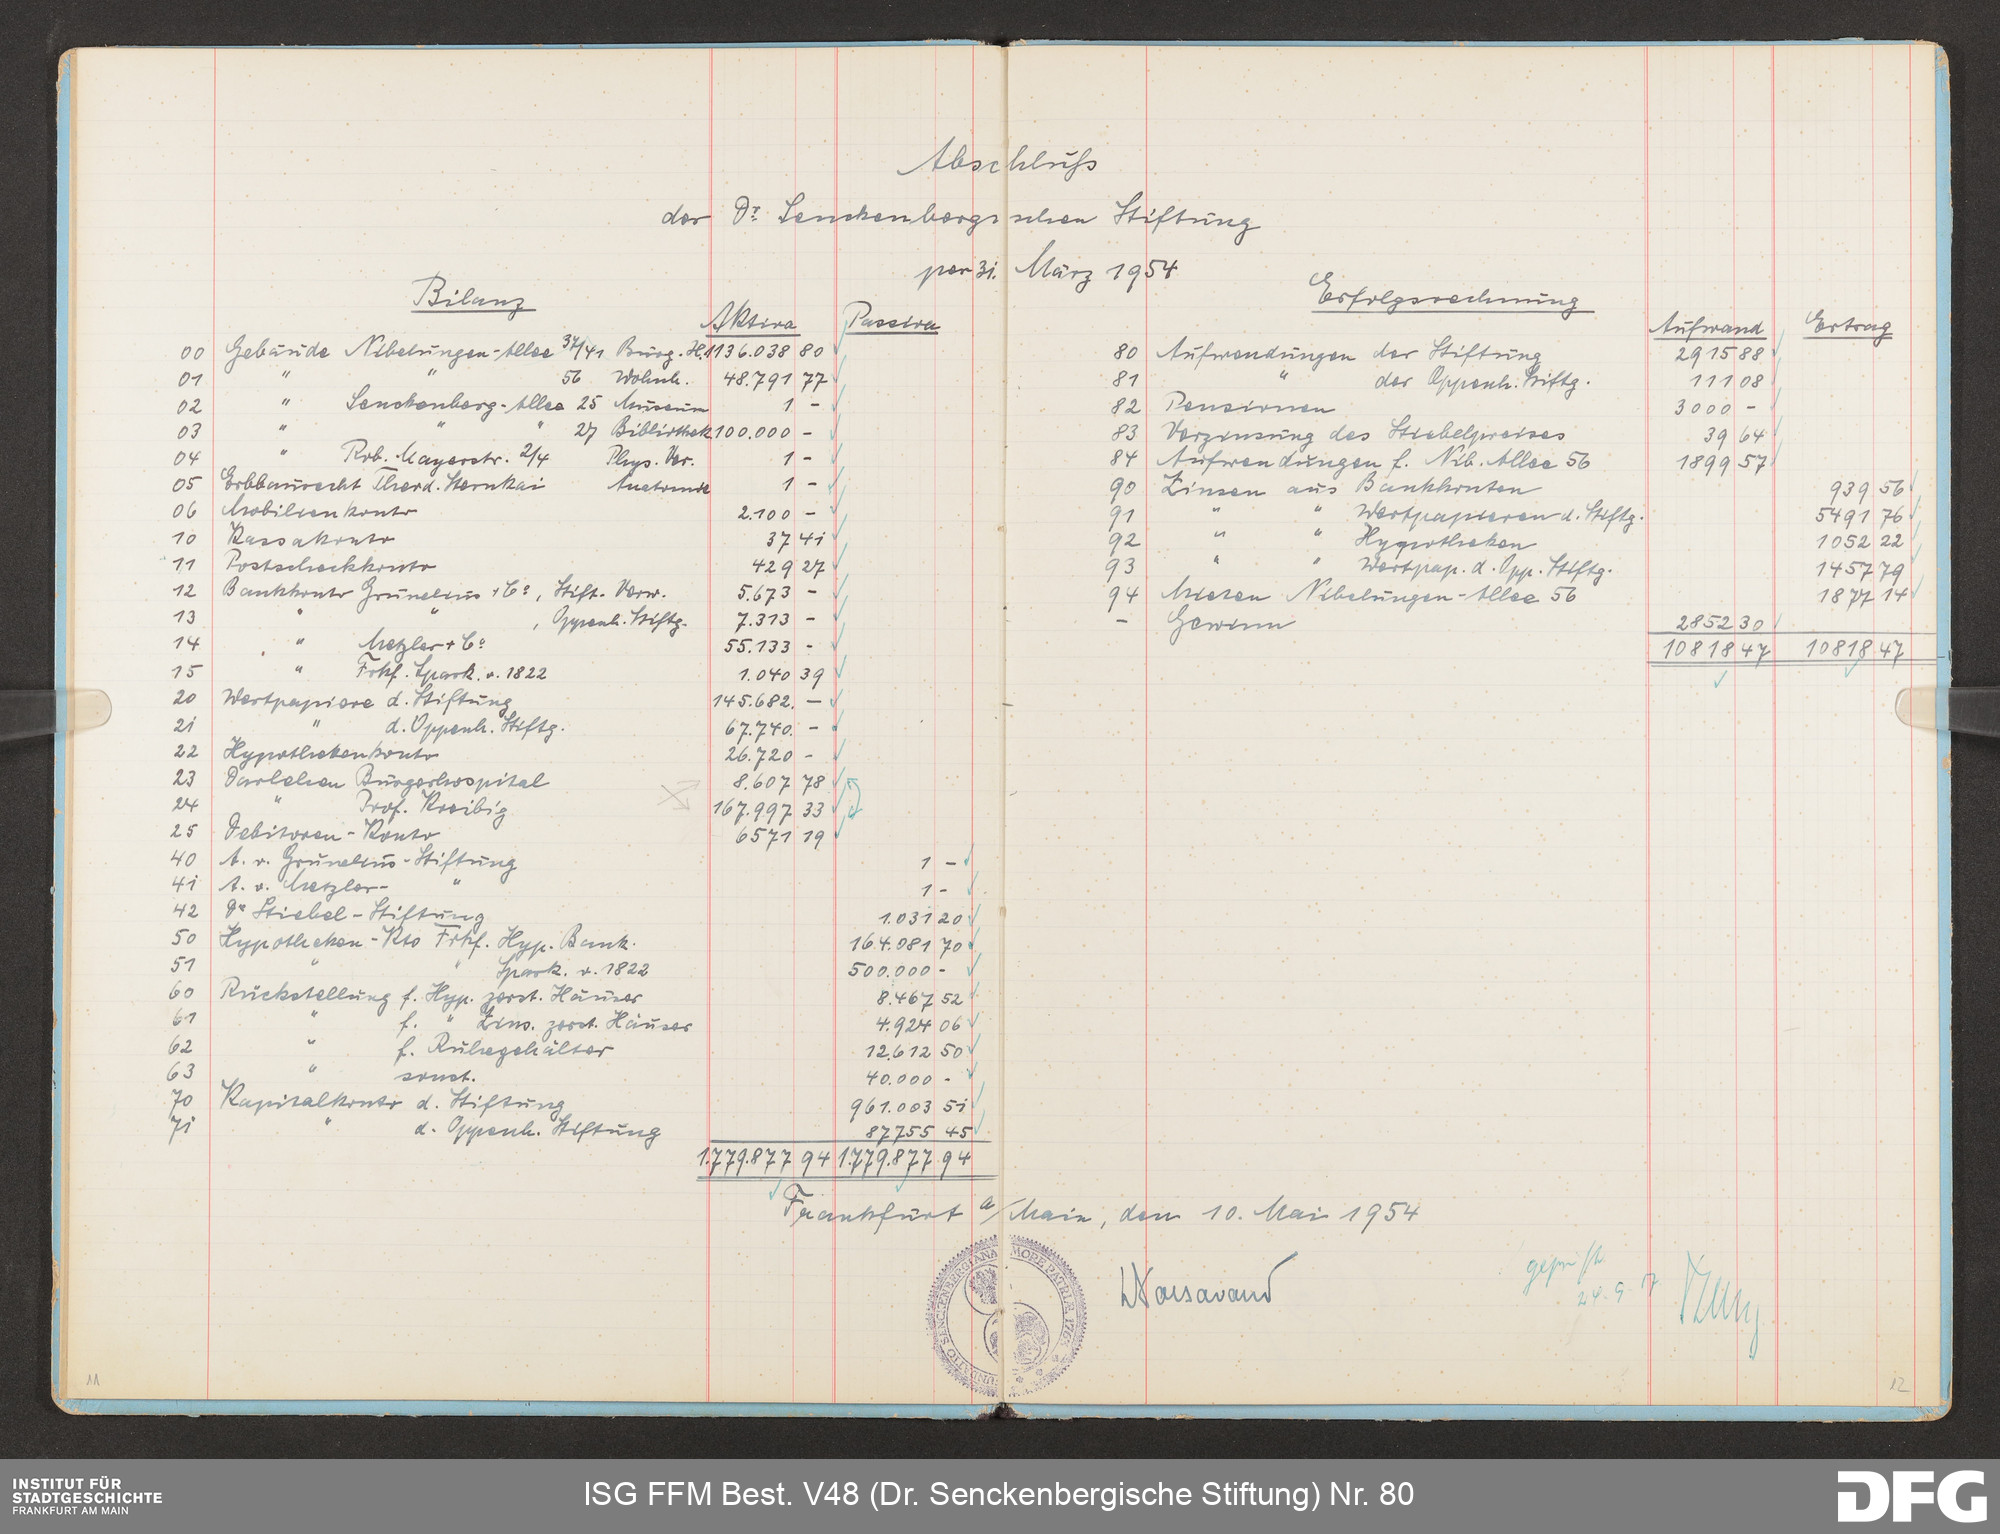 Abschluß
der Dr. Senckenbergischen Stiftung
per 31. März 1954
Bilanz
Aktiva Passiva
00 Gebäude Nibelungen-Allee 37/41 Bürg. H. 1136.038 80
01 " " 56 Wohnh. 48.791 77
02 " Senckenberg-Allee 25 Museum 1 -
03 " " " 27 Bibliothek 100.000 -
04 " Rob. Mayerstr. 2/4 Phys. Ver. 1 -
05 Erbbaurecht Theod. Sternkai Anatomie 1 -
06 Mobilienkonto 2.100 -
10 Kassakonto 37 41
11 Postscheckkonto 429 27
12 Bankkonto Grunelius + Co, Stift. Verw. 5.673 -
13 " " , Oppenh. Stiftg. 7.313 -
14 " Metzler + Co 55.133 -
15 " Frkf. Spark. v. 1822 1.040 39
20 Wertpapiere d. Stiftung 145.682. -
21 " d. Oppenh. Stiftg. 67.740. -
22 Hypothekenkonto 26.720 -
23 Darlehen Bürgerhospital 8.607 78
24 " Prof. Kreibig 167.997 33
25 Debitoren-Konto 6571 19
40 A. v. Grunelius-Stiftung 1 -
41 A. v. Metzler- " 1 -
42 Dr Stiebel-Stiftung 1.031 20
50 Hypotheken-Kto Frkf. Hyp. Bank. 164.081 70
51 " " Spark. v. 1822 500.000 -
60 Rückstellung f. Hyp. zerst. Häuser 8.467 52
61 " f. " Zins. zerst. Häuser 4.924 06
62 " f. Ruhegehälter 12.612 50
63 " sonst. 40.000 -
70 Kapitalkonto d. Stiftung 961.003 51
71 " d. Oppenh. Stiftung 87755 45
1.779.877 94 1.779.877 94
Erfolgsrechnung
Aufwand Ertrag
80 Aufwendungen der Stiftung 2915 88
81 " der Oppenh. Stiftg. 1110 8
82 Pensionen 3000 -
83 Verzinsung des Stiebelpreises 39 64
84 Aufwendungen f. Nib. Allee 56 1899 57
90 Zinsen aus Bankkonten 939 56
91 " " Wertpapieren d. Stiftg. 5491 76
92 " " Hypotheken 1052 22
93 " " Wertpap. d. Opp. Stiftg. 1457 79
94 Mieten Nibelungen-Allee 56 1877 14
- Gewinn 2852 30
10818 47 10818 47
Frankfurt a/Main, den 10. Mai 1954
SENCKENBERGIANA AMORE PATRIAE 1763
geprüft
11
12
INSTITUT FÜR
STADTGESCHICHTE
FRANKFURT AM MAIN
ISG FFM Best. V48 (Dr. Senckenbergische Stiftung) Nr. 80
DFG